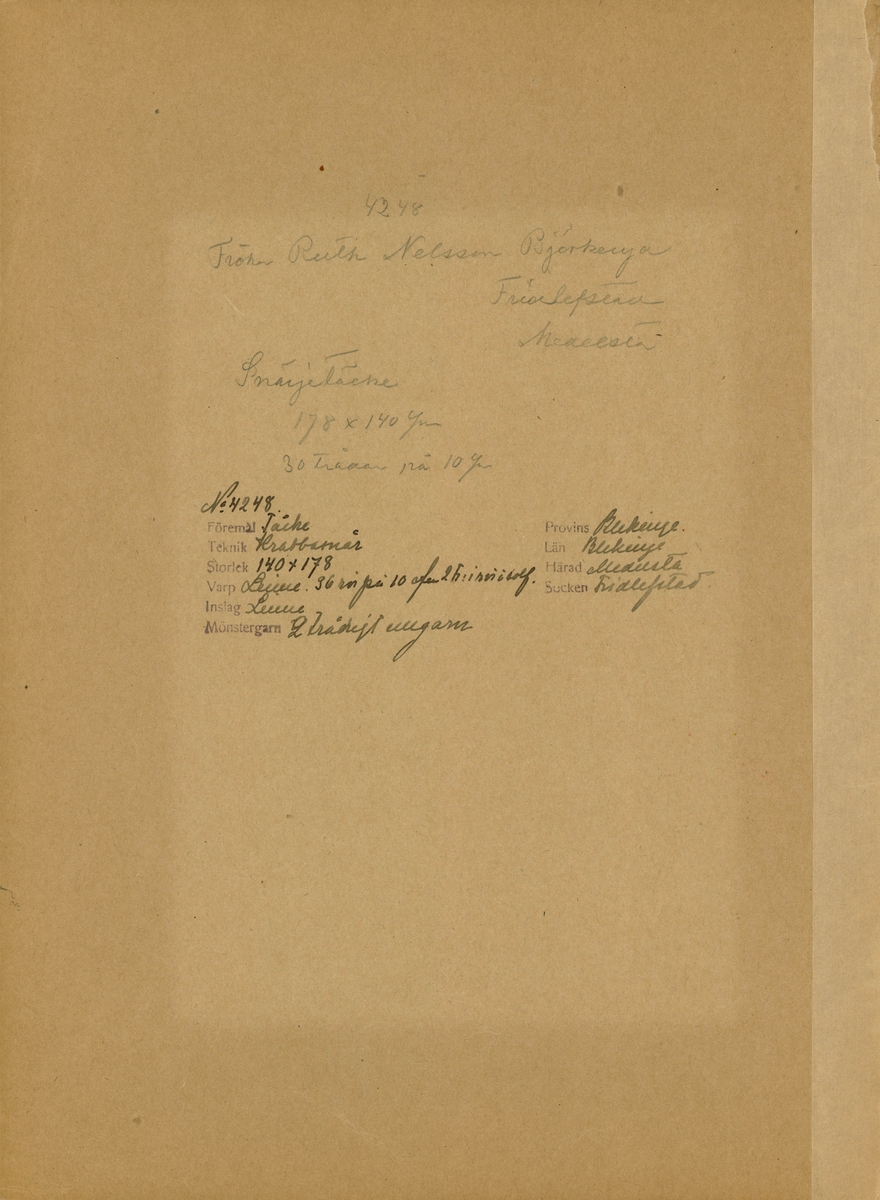 4248
Fröken Ruth Nelsson Björkerya
Fridlefstad
Medelsta
Snärjetäcke
178 x 140 c/m
30 trådar på 10 c/m
No 4248.
Föremål Täcke
Teknik Krabbasnår
Storlek 140 x 178
Varp Linne. 36 rör på 10 cm 2 tr. i rör i solf.
Inslag Linne
Mönstergarn 2 trådigt ullgarn
Provins Blekinge.
Län Blekinge
Härad Medelsta
Socken Fridlefstad.